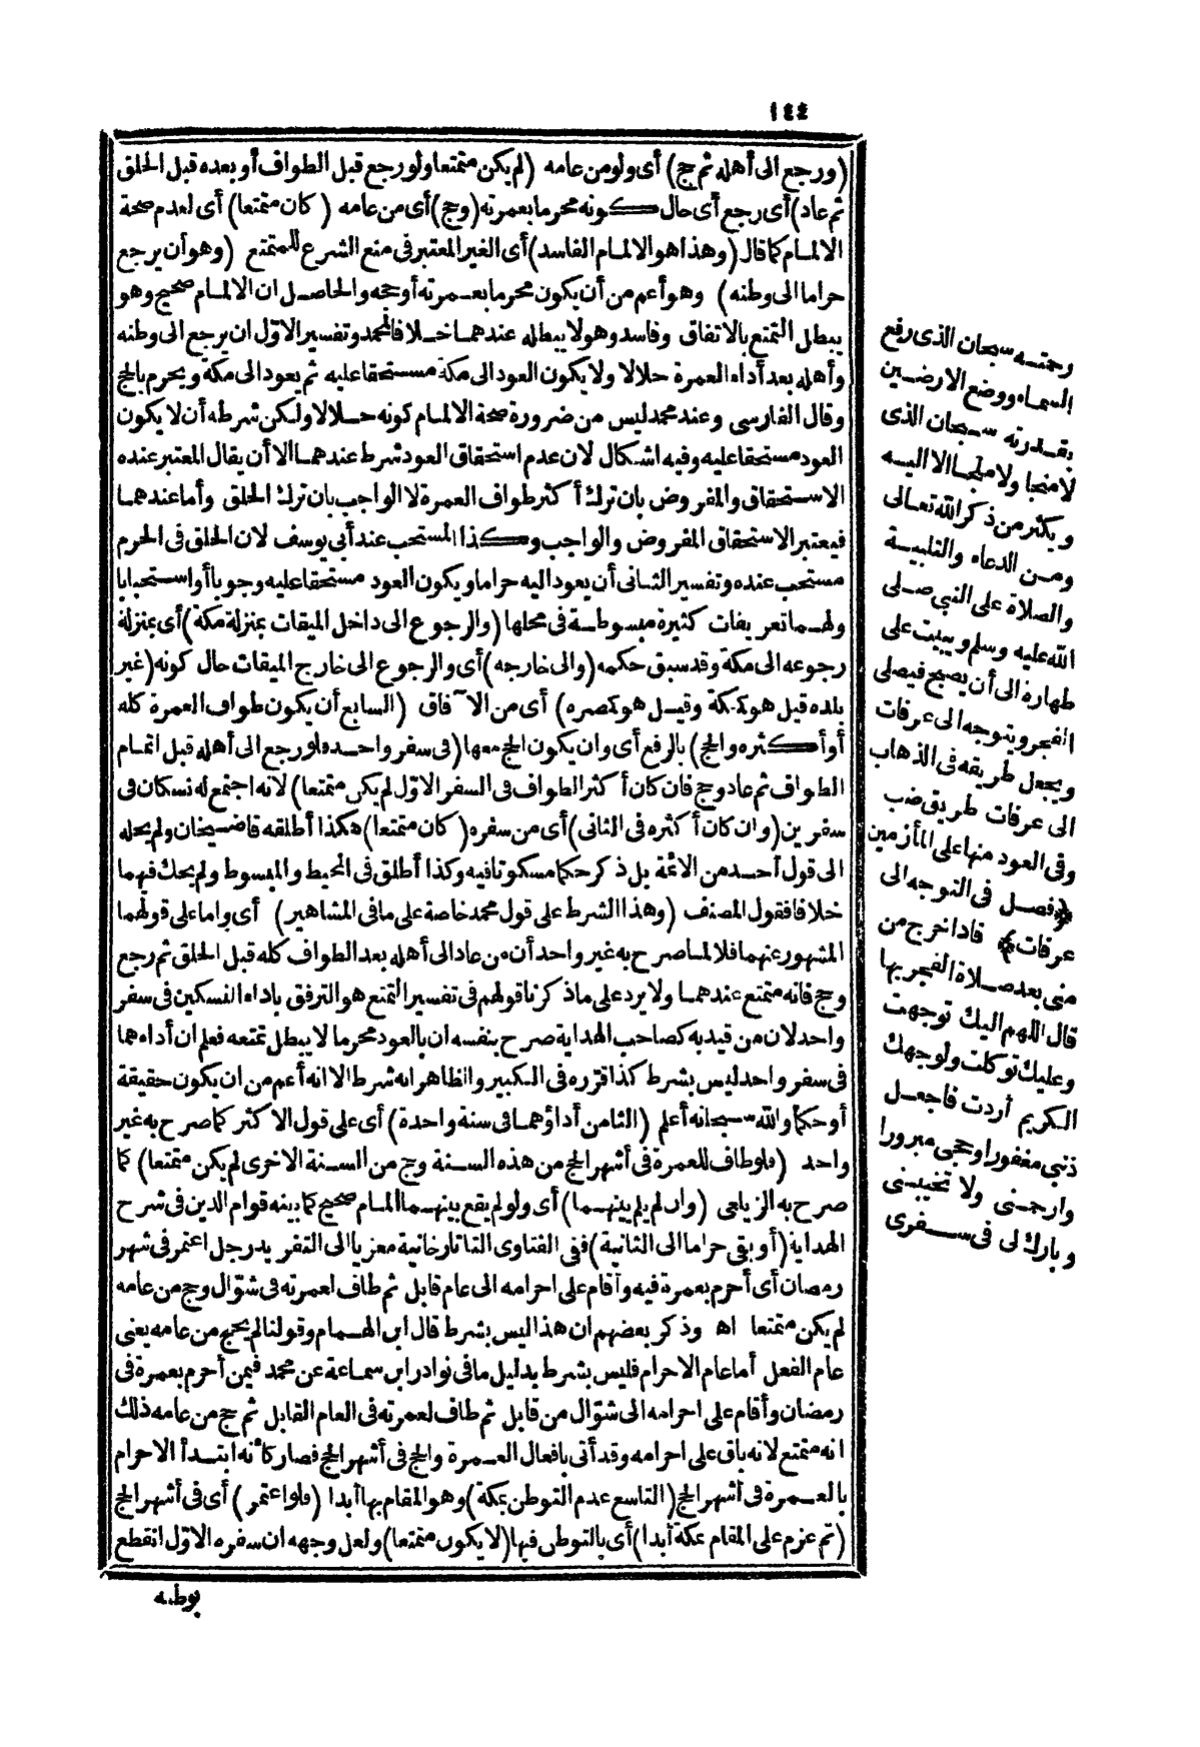 ١٤٤
(ورجع الى أهله ثم حج) أى ولو من عامه (لم يكن متمتعا ولو رجع قبل الطواف أو بعده قبل الحلق
ثم عاد) أى رجع أى حال كونه محرما بعمرته (وحج) أى من عامه (كان متمتعا) أى لعدم صحة
الالمام كما قال (وهذا هو الالمام الفاسد) أى الغير المعتبر فى منع الشرع للمتمتع (وهو أن يرجع
حراما الى وطنه) وهو أعم من أن يكون محرما بعمرته أو حجه والحاصل ان الالمام صحيح وهو
يبطل التمتع بالاتفاق وفاسد وهو لا يبطله عندهما خلافا لمحمد وتفسير الاول ان يرجع الى وطنه
وأهله بعد أداء العمرة حلالا ولا يكون العود الى مكة مستحقا عليه ثم يعود الى مكة ويحرم بالحج
وقال الفارسى وعند محمد ليس من ضرورة صحة الالمام كونه حلالا ولكن شرطه أن لا يكون
العود مستحقا عليه وفيه اشكال لان عدم استحقاق العود شرط عندهما الا أن يقال المعتبر عنده
الاستحقاق والمفروض بان ترك أكثر طواف العمرة لا الواجب بان ترك الحلق وأما عندهما
فيعتبر الاستحقاق المفروض والواجب وكذا المستحب عند أبى يوسف لان الحلق فى الحرم
مستحب عنده وتفسير الثانى أن يعود اليه حراما ويكون العود مستحقا عليه وجوبا أو استحبابا
ولهما تعريفات كثيرة مبسوطة فى محلها (والرجوع الى داخل الميقات بمنزلة مكة) أى بمنزلة
رجوعه الى مكة وقد سبق حكمه (والى خارجه) أى والرجوع الى خارج الميقات حال كونه (غير
بلده قيل هو كمكة وقيل هو كمصره) أى من الآفاق (السابع أن يكون طواف العمرة كله
أو أكثره والحج) بالرفع أى وان يكون الحج معها (فى سفر واحد فلو رجع الى أهله قبل اتمام
الطواف ثم عاد وحج فان كان أكثر الطواف فى السفر الاول لم يكن متمتعا) لانه اجتمع له نسكان فى
سفرين (وان كان أكثره فى الثانى) أى من سفره (كان متمتعا) هكذا أطلقه قاضيخان ولم يحله
الى قول أحد من الائمة بل ذكر حكما مسكوتا فيه وكذا أطلق فى المحيط والمبسوط ولم يحك فيهما
خلافا فقول المصنف (وهذا الشرط على قول محمد خاصة على ما فى المشاهير) أى واما على قولهما
المشهور عنهما فلا لما صرح به غير واحد أن من عاد الى أهله بعد الطواف كله قبل الحلق ثم رجع
وحج فانه متمتع عندهما ولا يرد على ما ذكرنا قولهم فى تفسير التمتع هو الترفق باداء النسكين فى سفر
واحد لان من قيد به كصاحب الهداية صرح بنفسه ان بالعود محرما لا يبطل تمتعه فعلم ان أداءهما
فى سفر واحد ليس بشرط كذا قرره فى الكبير والظاهر انه شرط الا انه أعم من ان يكون حقيقة
أو حكما والله سبحانه أعلم (الثامن أداؤهما فى سنة واحدة) أى على قول الاكثر كما صرح به غير
واحد (فلو طاف للعمرة فى أشهر الحج من هذه السنة وحج من السنة الاخرى لم يكن متمتعا) كما
صرح به الزيلعى (وان لم يلم بينهما) أى ولو لم يقع بينهما المام صحيح كما بينه قوام الدين فى شرح
الهداية (أو بقى حراما الى الثانية) ففى الفتاوى التاتارخانية معزيا الى التفريد رجل اعتمر فى شهر
رمضان أى أحرم بعمرة فيه وأقام على احرامه الى عام قابل ثم طاف لعمرته فى شوال وحج من عامه
لم يكن متمتعا اه وذكر بعضهم ان هذا ليس بشرط قال ابن الهمام وقولنا لم يحج من عامه يعنى
عام الفعل أما عام الاحرام فليس بشرط بدليل ما فى نوادر ابن سماعة عن محمد فيمن أحرم بعمرة فى
رمضان وأقام على احرامه الى شوال من قابل ثم طاف لعمرته فى العام القابل ثم حج من عامه ذلك
انه متمتع لانه باق على احرامه وقد أتى بافعال العمرة والحج فى أشهر الحج فصار كأنه ابتدأ الاحرام
بالعمرة فى أشهر الحج (التاسع عدم التوطن بمكة) وهو المقام بها أبدا (فلو اعتمر) أى فى أشهر الحج
(ثم عزم على المقام بمكة أبدا) أى بالتوطن فيها (لا يكون متمتعا) ولعل وجهه ان سفره الاول انقطع
رحمته سبحان الذى رفع
السماء ووضع الارضين
بقدرته سبحان الذى
لا منجا ولا ملجا الا اليه
ويكثر من ذكر الله تعالى
ومن الدعاء والتلبية
والصلاة على النبى صلى
الله عليه وسلم ويبيت على
طهارة الى أن يصبح فيصلى
الفجر ويتوجه الى عرفات
ويجعل طريقه فى الذهاب
الى عرفات طريق ضب
وفى العود منها على المأزمين
﴿فصل فى التوجه الى
عرفات﴾ فاذا خرج من
منى بعد صلاة الفجر بها
قال اللهم اليك توجهت
وعليك توكلت ولوجهك
الكريم أردت فاجعل
ذنبى مغفورا وحجى مبرورا
وارحمنى ولا تخيبنى
وبارك لى فى سفرى